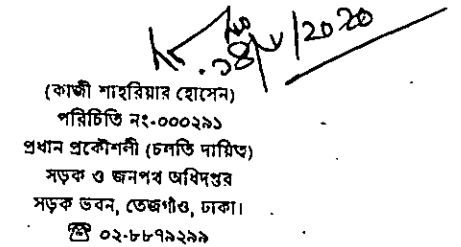 /2020
(কাজী শাহরিয়ার হোসেন)
পরিচিতি নং-০০০২৯১
প্রধান প্রকৌশলী (চলতি দায়িত্ব)
সড়ক ও জনপথ অধিদপ্তর
সড়ক ভবন, তেজগাঁও, ঢাকা।
☎ ০২-৮৮৭৯২৯৯